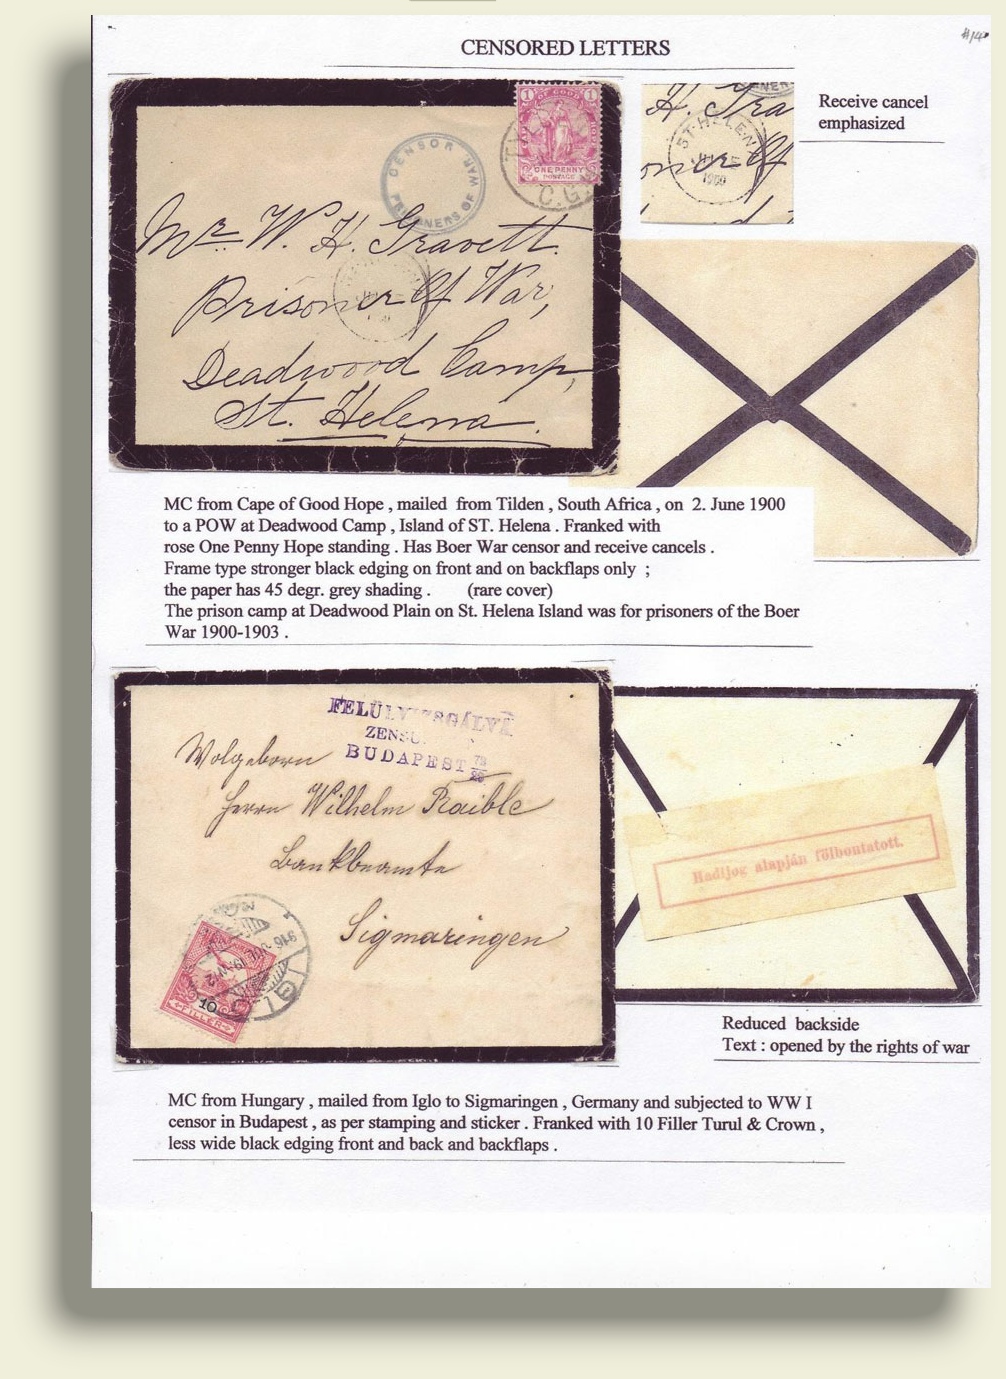 #14
CENSORED LETTERS
CENSOR PRISONERS OF WAR
1 OF GOOD 1
ONE PENNY
POSTAGE
C.G.
Mr. W. H. Gravett.
Prisoner Of War,
Deadwood Camp,
St. Helena.
H. Gra
ST. HELENA
1900
oner Of
Receive cancel
emphasized
MC from Cape of Good Hope , mailed from Tilden , South Africa , on 2. June 1900
to a POW at Deadwood Camp , Island of ST. Helena . Franked with
rose One Penny Hope standing . Has Boer War censor and receive cancels .
Frame type stronger black edging on front and on backflaps only ;
the paper has 45 degr. grey shading . (rare cover)
The prison camp at Deadwood Plain on St. Helena Island was for prisoners of the Boer
War 1900-1903 .
FELÜLVIZSGÁLVA
ZENSU
BUDAPEST
Wolgeborn
Herrn Wilhelm Raible
Bankbeamte
Sigmaringen
916 JUL 19
IGL
10
FILLER
Hadijog alapján fölbontatott.
Reduced backside
Text : opened by the rights of war
MC from Hungary , mailed from Iglo to Sigmaringen , Germany and subjected to WW I
censor in Budapest , as per stamping and sticker . Franked with 10 Filler Turul & Crown ,
less wide black edging front and back and backflaps .